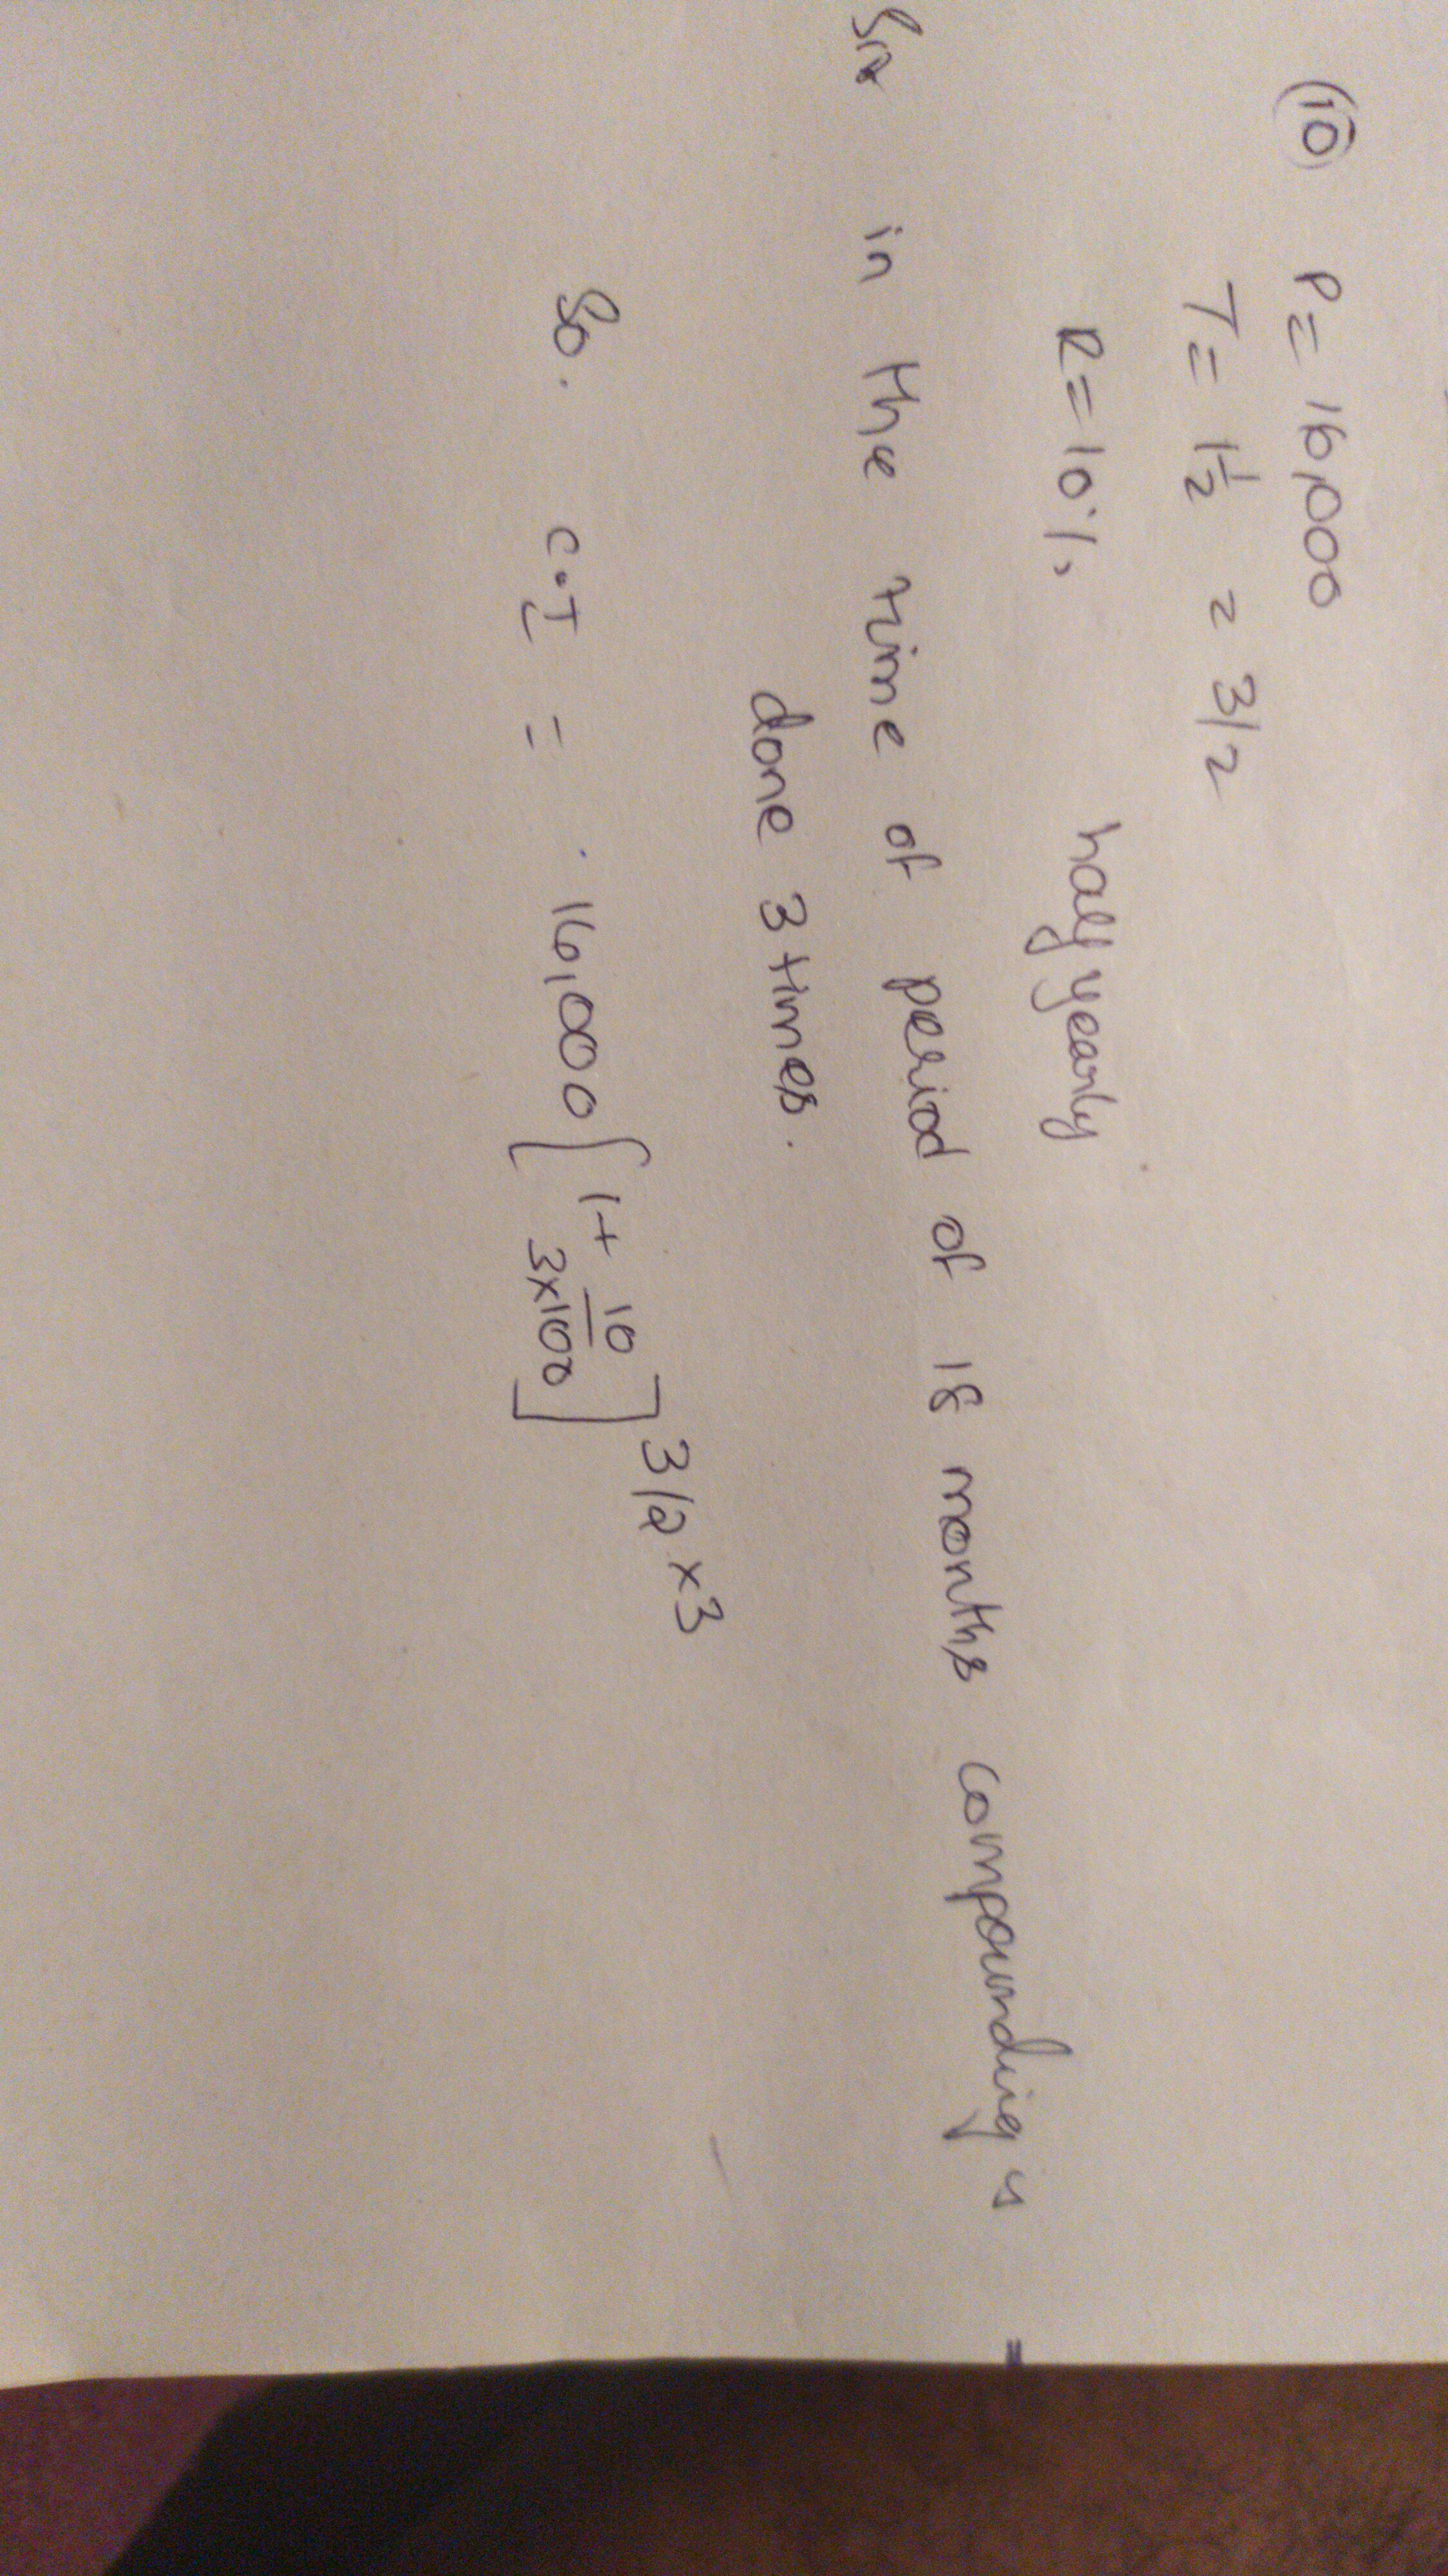 (10) P = 16,000
T = 1 1/2 = 3/2
R = 10% half yearly
in the time of period of 18 months compounding is
done 3 times.
So. C.I = 16,000 [1 + 10/3×100]^3/2 ×3